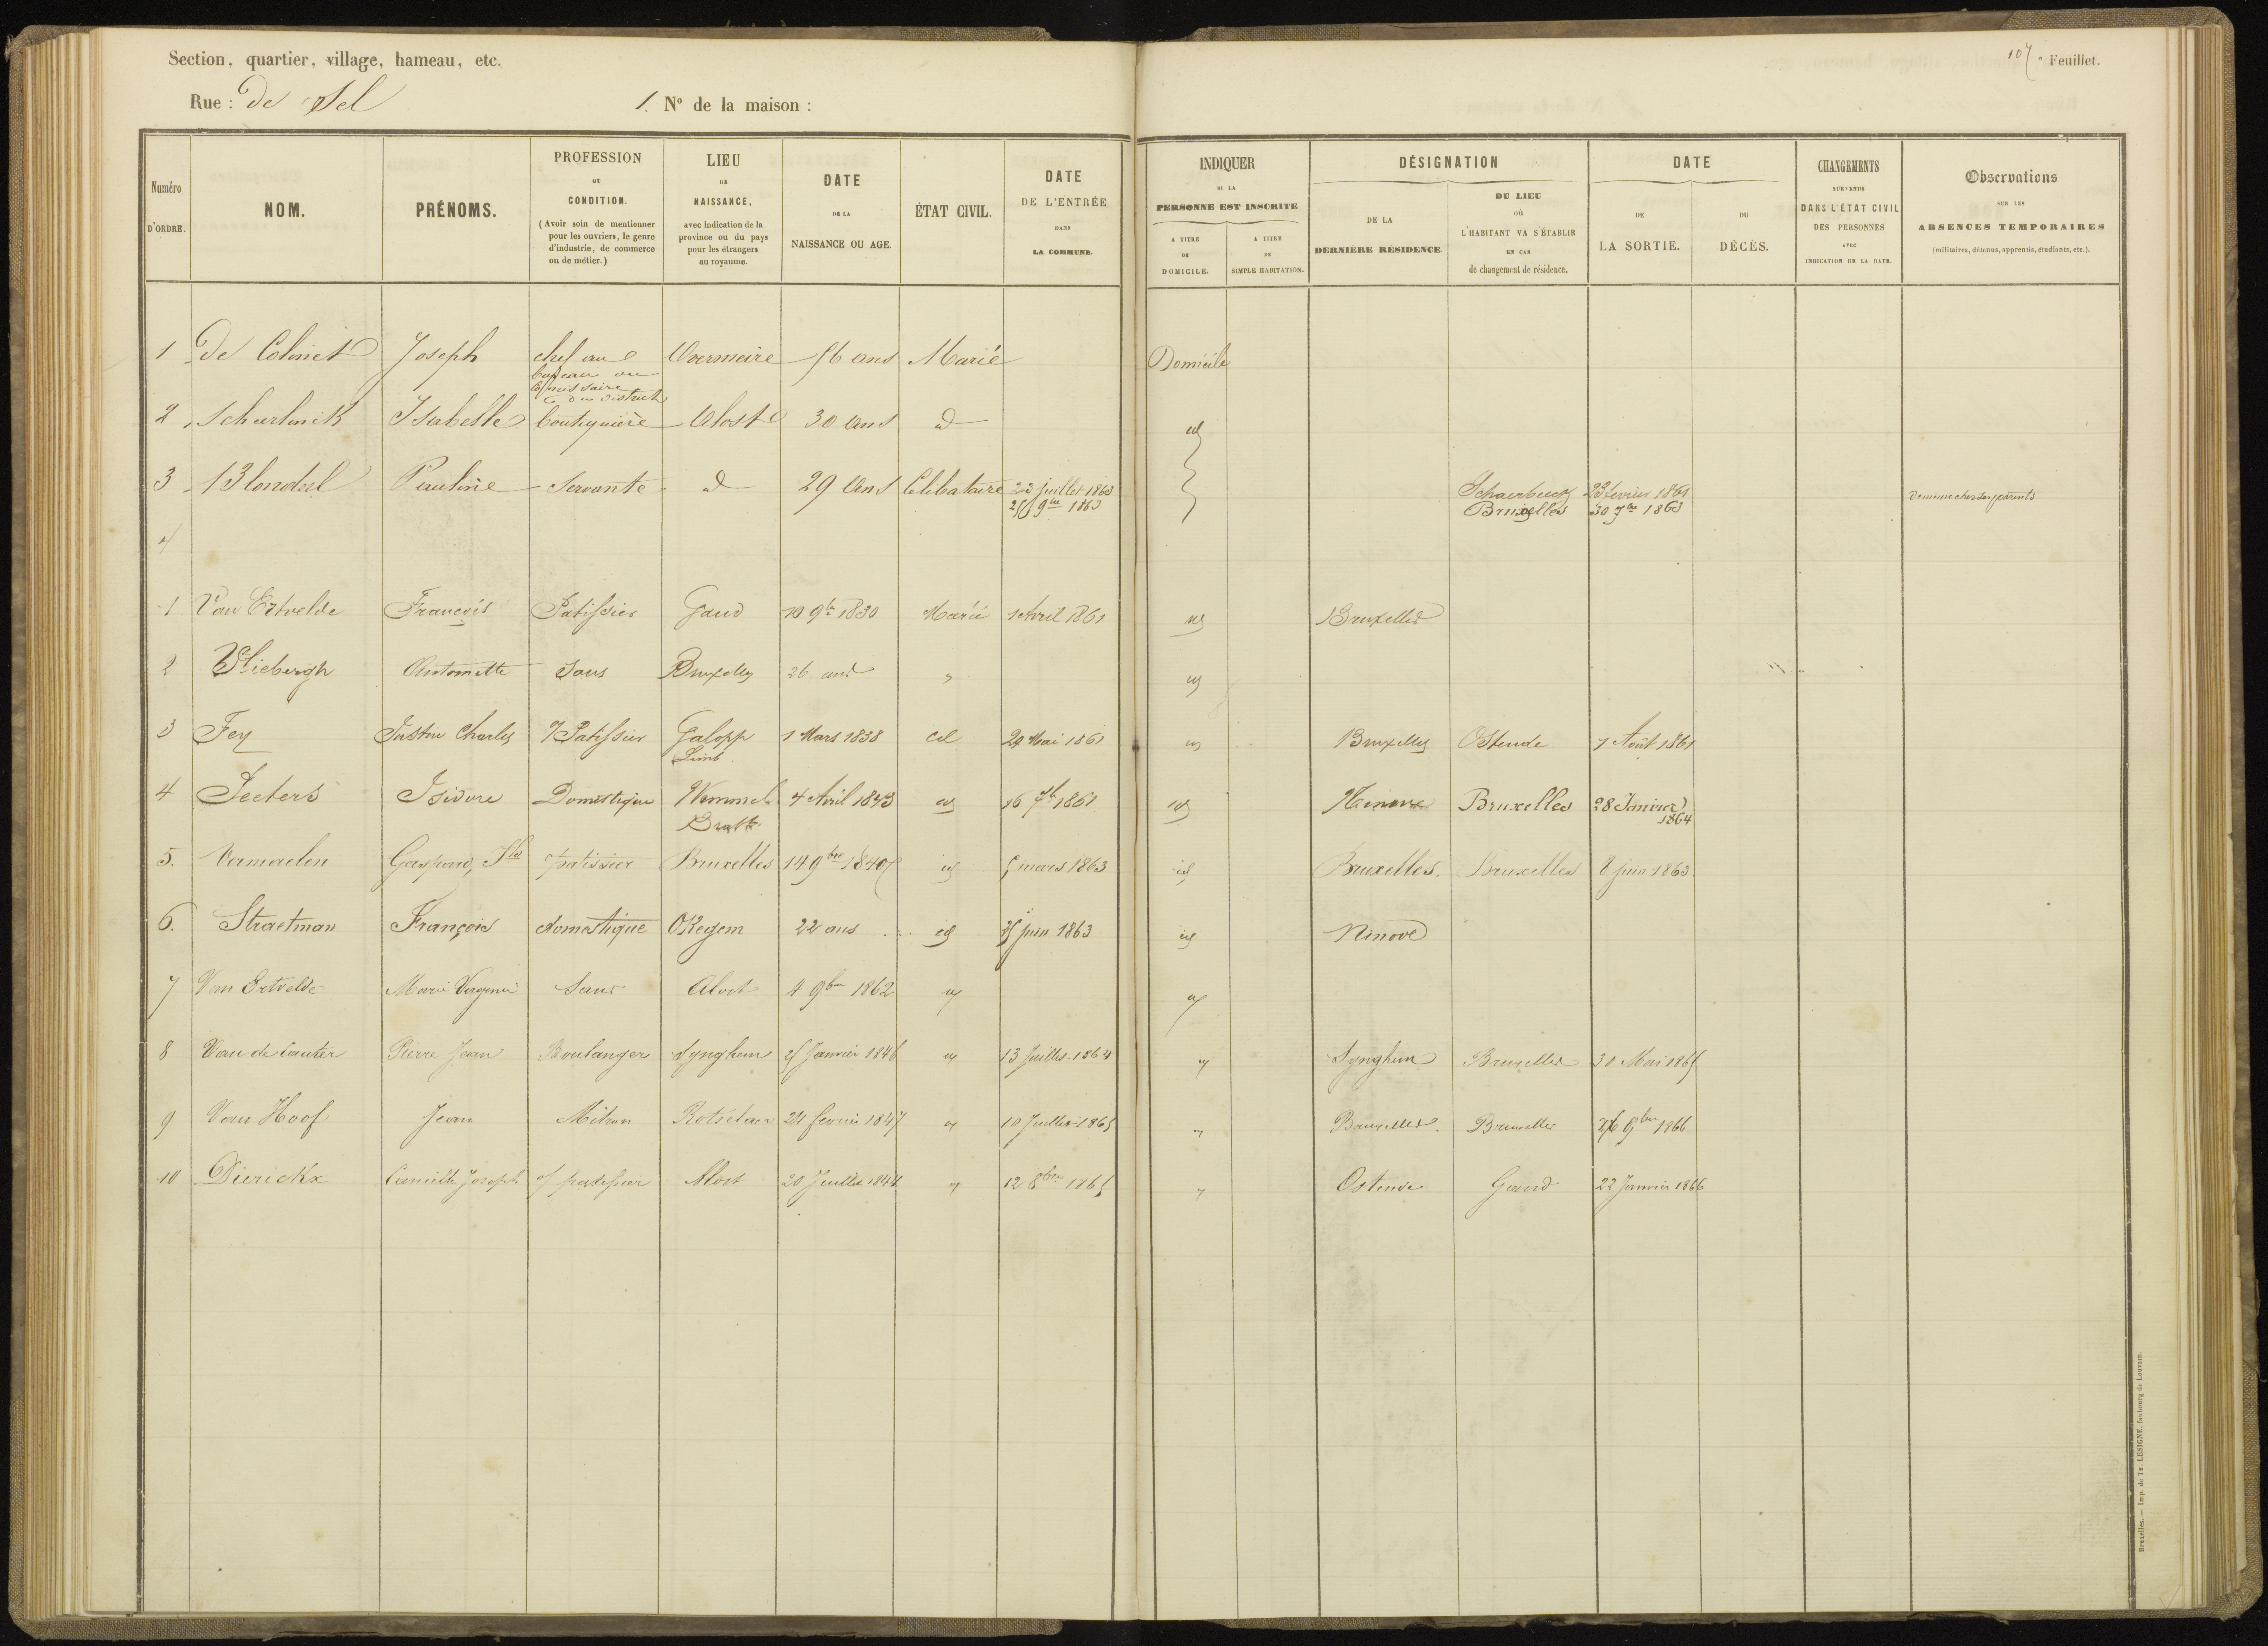 107 e Feuillet.
Section, quartier, village, hameau, etc.
Rue : De Sel 1. No de la maison :
Numéro D'ORDRE.
NOM.
PRÉNOMS.
PROFESSION OU CONDITION. (Avoir soin de mentionner pour les ouvriers, le genre d'industrie, de commerce ou de métier.)
LIEU DE NAISSANCE, avec indication de la province ou du pays pour les étrangers au royaume.
DATE DE LA NAISSANCE OU AGE.
ÉTAT CIVIL.
DATE DE L'ENTRÉE DANS LA COMMUNE.
INDIQUER SI LA PERSONNE EST INSCRITE
A TITRE DE DOMICILE.
A TITRE DE SIMPLE HABITATION.
DÉSIGNATION
DE LA DERNIÈRE RÉSIDENCE
DU LIEU OÙ L'HABITANT VA S'ÉTABLIR EN CAS de changement de résidence.
DATE
DE LA SORTIE.
DU DÉCÈS.
CHANGEMENTS SURVENUS DANS L'ÉTAT CIVIL DES PERSONNES AVEC INDICATION DE LA DATE.
Observations SUR LES ABSENCES TEMPORAIRES (militaires, détenus, apprentis, étudiants, etc.).
1 De Colinet Joseph chef au bureau du Commissaire du district 56 ans Marié Domicile
2 Isabelle boutiquière Alost 30 ans id id
3 Blondeel Pauline Servante id 29 ans Célibataire 23 juillet 1863 Schaerbeek 22 fevrier 1861 Demeure chez ses parents
25 9bre 1863 Bruxelles 30 7bre 1863
4
1 Van Ertvelde François Patissier Gand 10 9bre 1830 Marié 1 Avril 1861 id Bruxelles
2 Vliebergh Antoinette Sans Bruxelles 26 ans " id
3 Fey Justin Charles Patissier Galopp Limb. 1 Mars 1838 cel 29 Mai 1861 id Bruxelles Ostende 7 Août 1861
4 Peeters Isidore Domestique Wemmel Brabt 4 Avril 1843 id 16 7bre 1861 id Ninove Bruxelles 28 Janvier 1864
5. Vermaelen Gaspard, patissier Bruxelles 14 9bre 1840 id 5 mars 1863 id Bruxelles. Bruxelles 8 juin 1863
6. Straetman François domestique Okegem 22 ans id 25 juin 1863 id Ninove
7 Van Ertvelde Marie Virginie Sans Alost 4 9bre 1862 id id
8 Van de Cauter Pierre Jean Boulanger Synghem 25 Janvier 1846 id 13 Juillet 1864 id Synghem Bruxelles 30 Mai 1865
9 Van Hoof Jean Mitron Rotselaer 24 fevrier 1847 id 10 Juillet 1865 id Bruxelles. Bruxelles 26 9bre 1866
10 Dierickx Camille Joseph patissier Alost 20 Juillet 1844 id 12 8bre 1865 id Ostende Gand 22 Janvier 1866
Bruxelles. — Imp. de Th. LESIGNE, faubourg de Louvain.